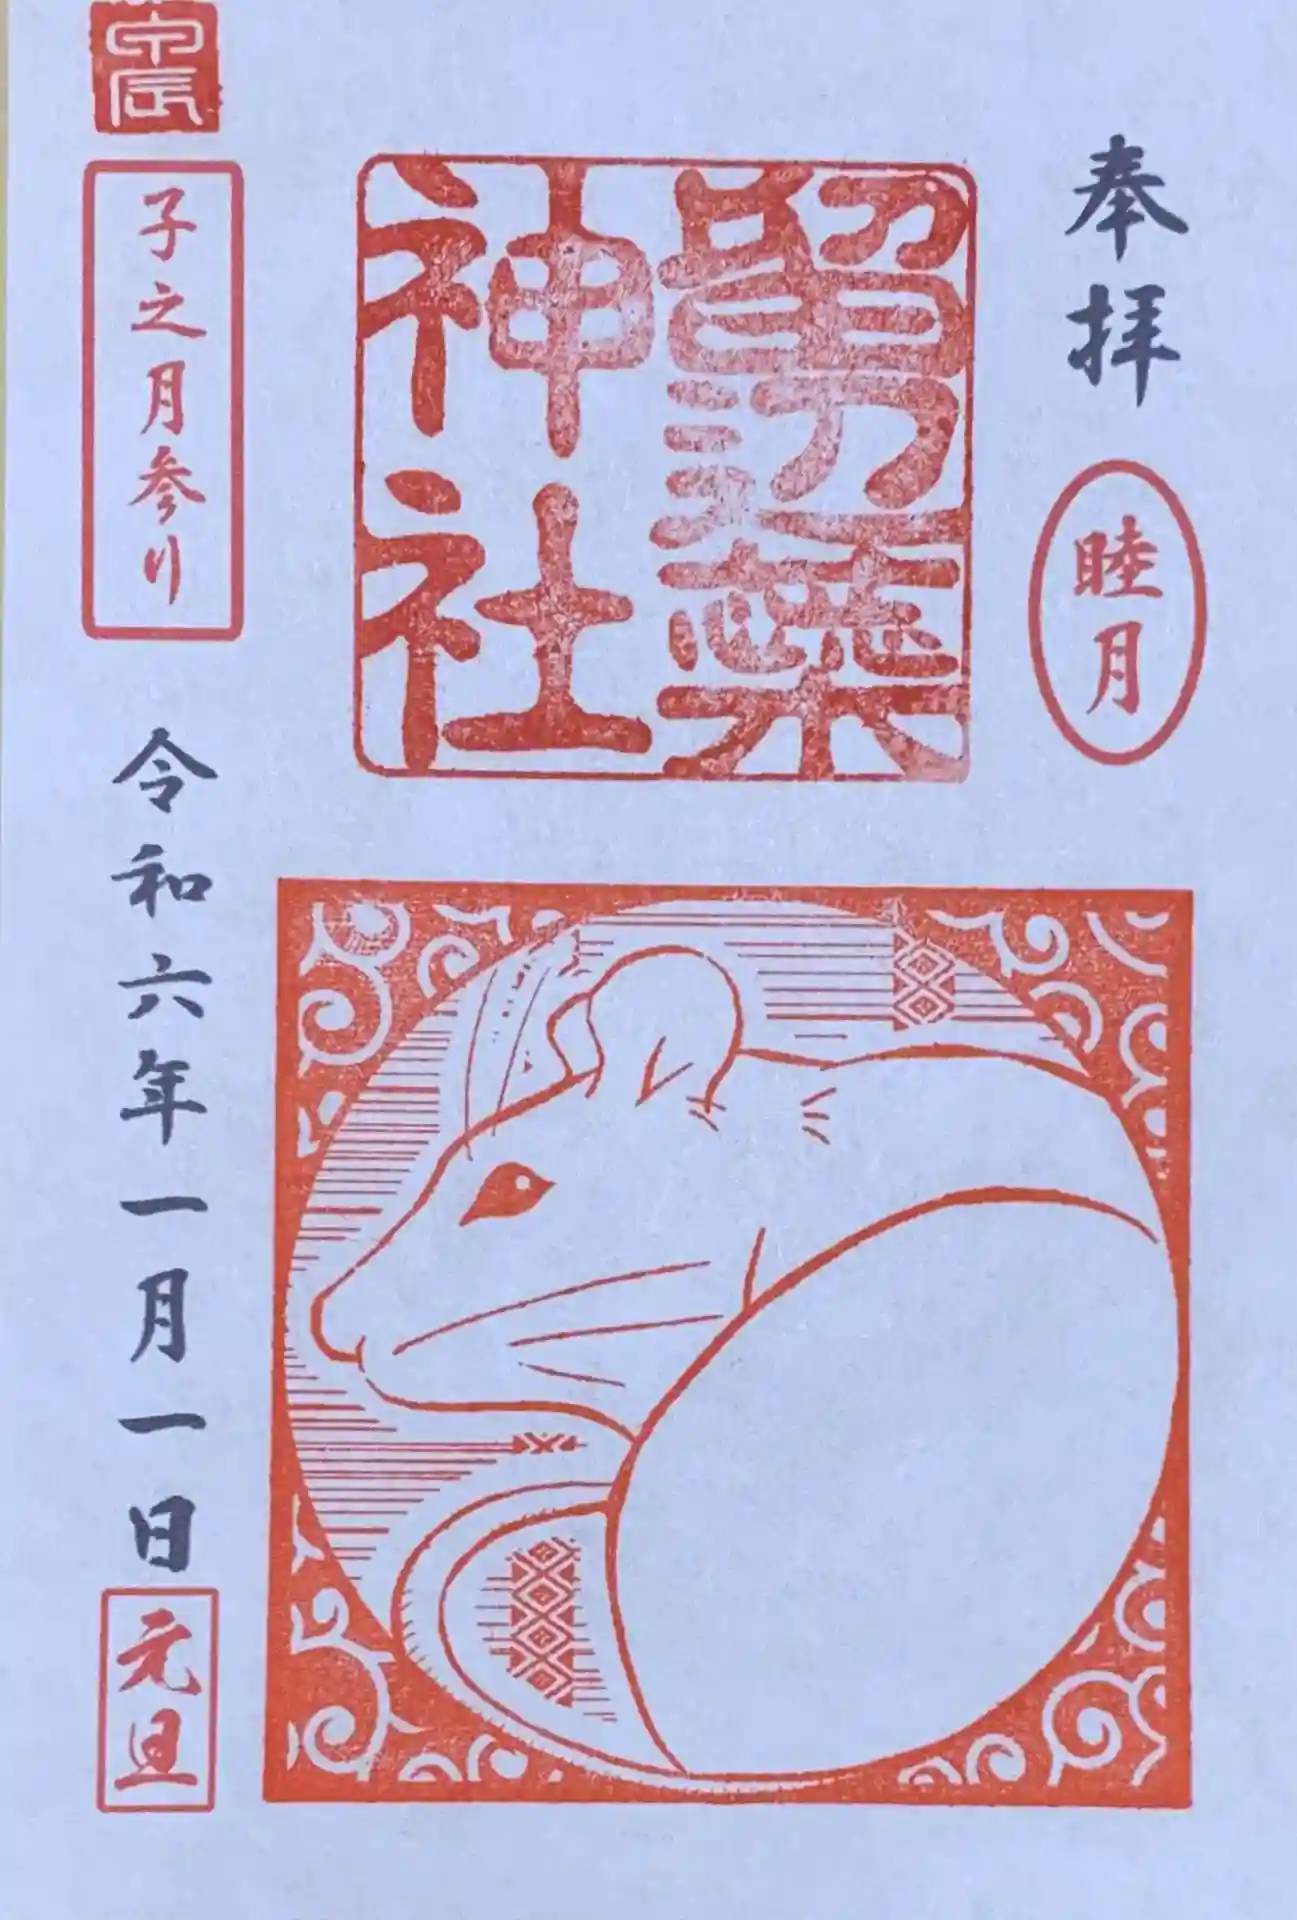 奉拝
睦月
留辺蘂
神社
甲辰
子之月参り
令和六年一月一日
元旦